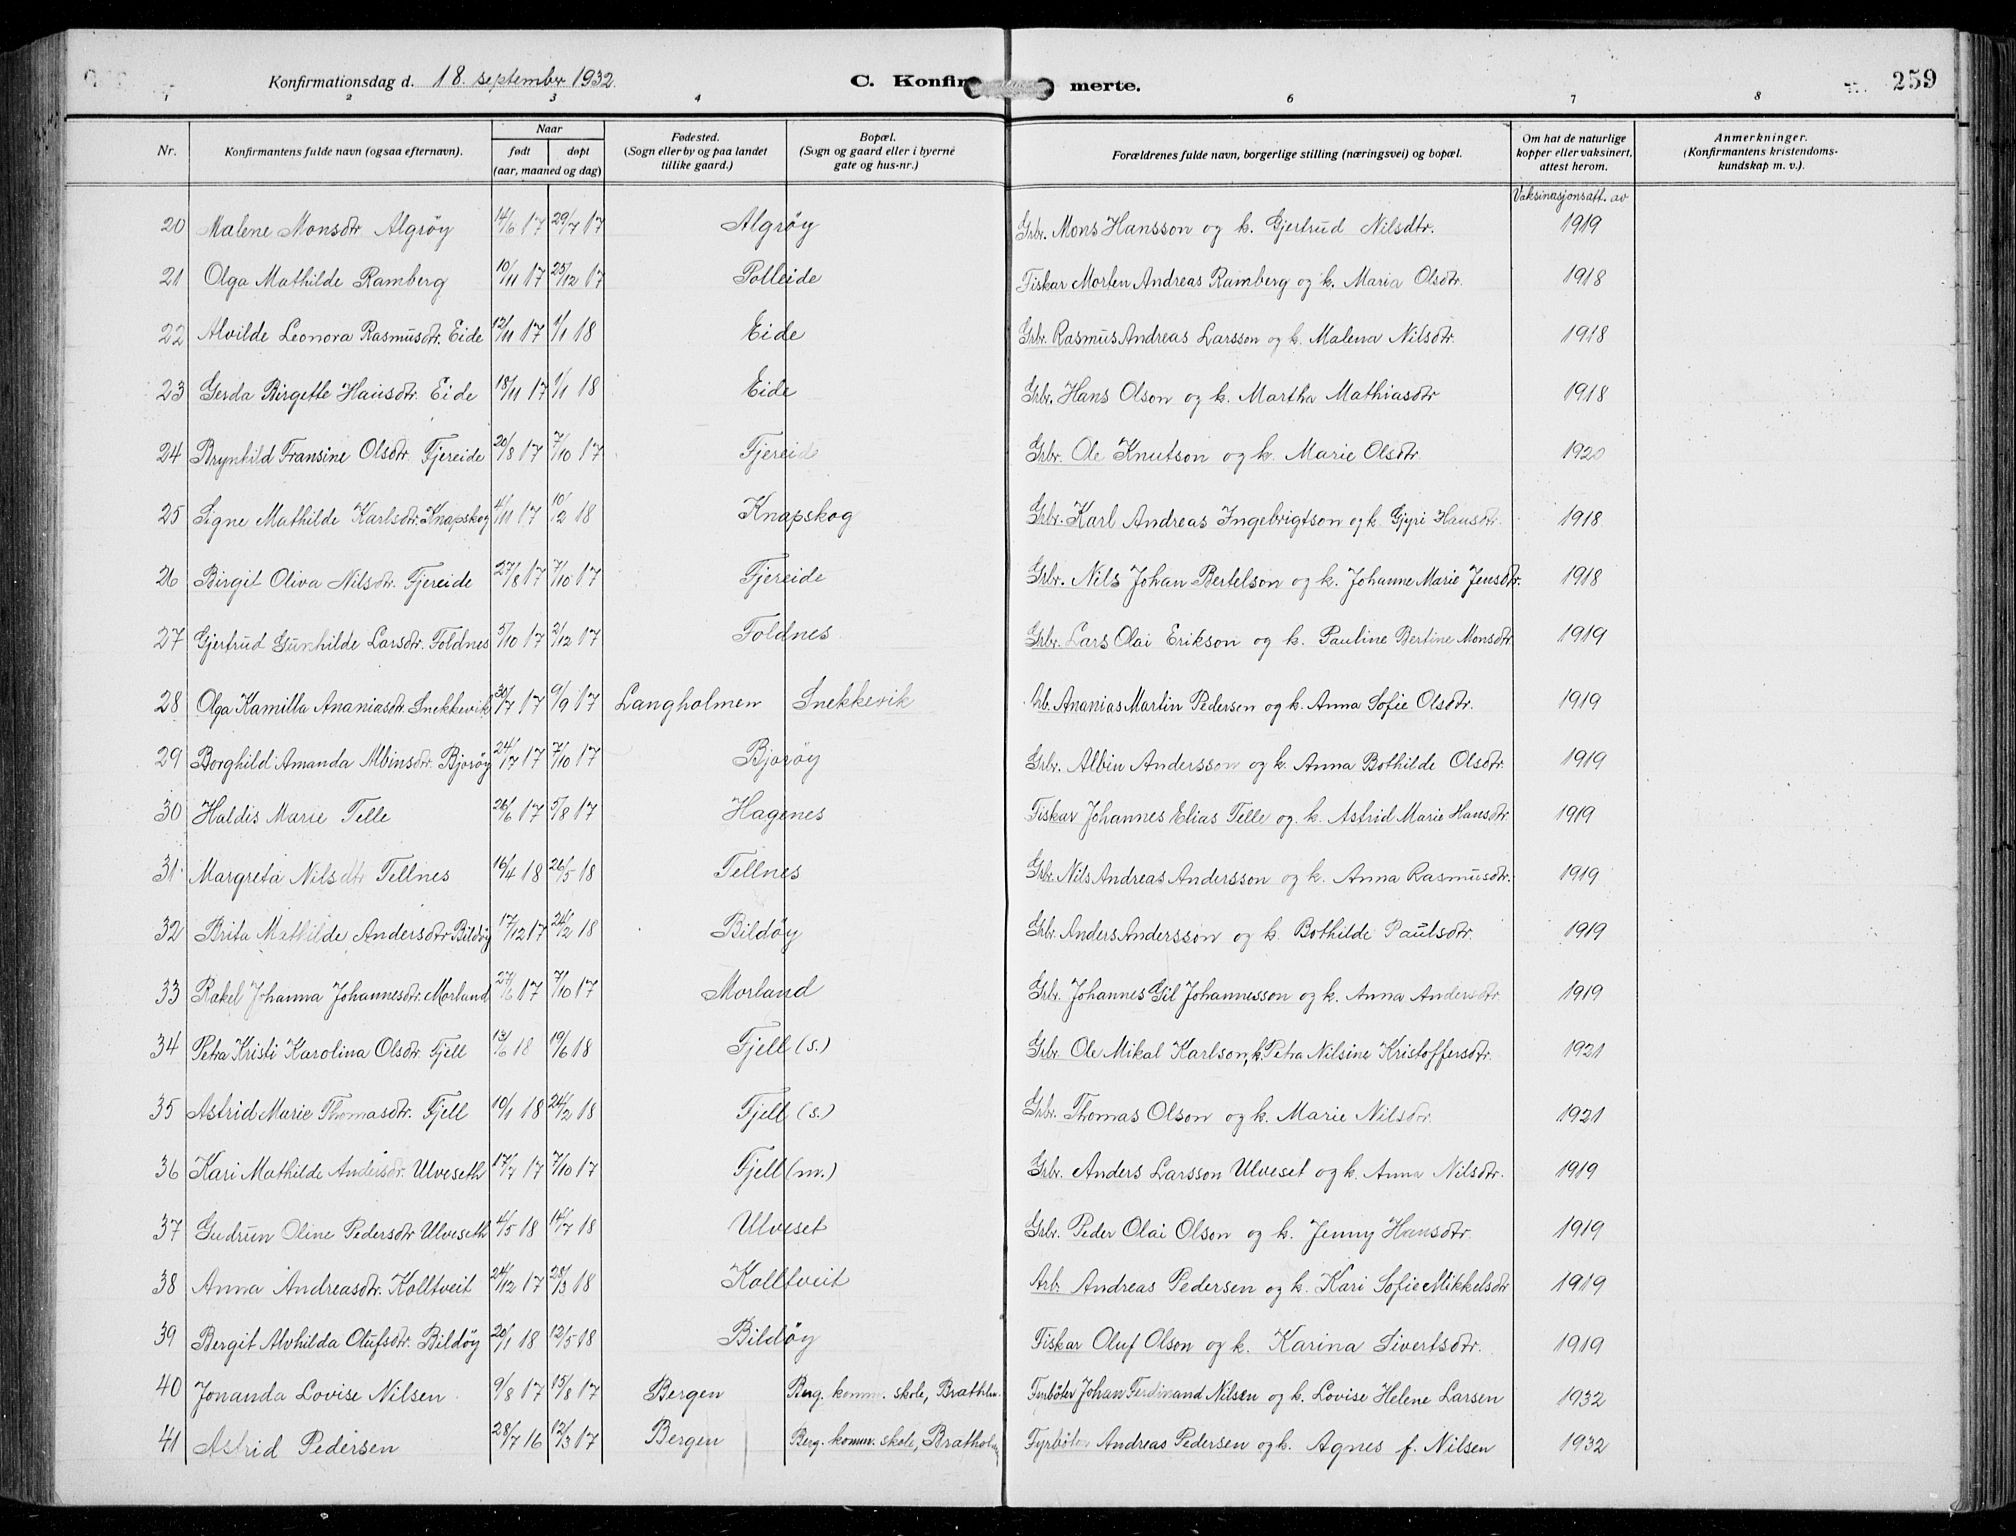 Konfirmationsdag d. 18. september 1932. C. Konfir merte. 259
1 2 3 4 6 7 8
Nr. Konfirmantens fulde navn (ogsaa efternavn). Naar født døpt (aar, maaned og dag) Fødested. (Sogn eller by og paa landet tillike gaard.) Bopæl. (Sogn og gaard eller i byerne gate og hus-nr.) Forældrenes fulde navn, borgerlige stilling (næringsvei) og bopæl. Om hat de naturlige kopper eller vaksinert, attest herom. Anmerkninger. (Konfirmantens kristendoms-kundskap m. v.).
Vaksinasjonsatt. av
20 Malene Monsdtr Algrøy 14/6 17 29/7 17 Algrøy Grbr. Mons Hansson og k. Gjertrud Nilsdtr. 1919
21 Olga Mathilde Ramberg 10/11 17 25/12 17 Polleide Fiskar Morten Andreas Ramberg og k. Maria Olsdtr. 1918
22 Alvilde Leonora Rasmusdtr. Eide 12/11 17 1/1 18 Eide Grbr. Rasmus Andreas Larsson og k. Malena Nilsdtr. 1918
23 Gerda Birgette Hansdtr. Eide 18/11 17 1/1 18 Eide Grbr. Hans Olson og k. Martha Mathiasdtr 1918
24 Brynhild Fransine Olsdtr. Fjereide 20/8 17 7/10 17 Fjereid Grbr. Ole Knutson og k. Marie Olsdtr 1920
25 Signe Mathilde Karlsdtr. Knapskog 4/11 17 10/2 18 Knapskog Grbr. Karl Andreas Ingebrigtson og k. Gyri Hansdtr. 1918
26 Birgit Oliva Nilsdtr. Fjereide 27/8 17 7/10 17 Fjereide Grbr. Nils Johan Bertelson og k. Johanne Marie Jensdtr. 1918
27 Gjertrud Gunhilde Larsdtr. Foldnes 5/10 17 2/12 17 Foldnes Grbr. Lars Olai Erikson og k. Pauline Bertine Monsdtr 1919
28 Olga Kamilla Ananiasdtr. Snekkevik 30/7 17 9/9 17 Langholmen Snekkevik Arb. Ananias Martin Pedersen og k. Anna Sofie Olsdtr. 1919
29 Borghild Amanda Albinsdtr. Bjorøy 24/7 17 7/10 17 Bjorøy Grbr. Albin Andersson og k. Anna Bothilde Olsdtr 1919
30 Haldis Marie Telle 26/6 17 5/8 17 Hagenes Fiskar Johannes Elias Telle og k. Astrid Marie Hansdtr 1919
31 Margreta Nilsdtr Tellnes 16/4 18 26/5 18 Tellnes Grbr. Nils Andreas Andersson og k. Anna Rasmusdtr. 1919
32 Brita Mathilde Andersdtr Bildøy 17/12 17 24/2 18 Bildøy Grbr. Anders Andersson og k. Bothilde Paulsdtr. 1919
33 Rakel Johanna Johannesdtr. Morland 27/6 17 7/10 17 Morland Grbr. Johannes Gil Johannesson og k. Anna Andersdtr. 1919
34 Petra Kristi Karolina Olsdtr. Fjell 13/6 18 19/6 18 Fjell (s.) Grbr. Ole Mikal Karlson, k. Petra Nilsine Kristoffersdtr. 1921
35 Astrid Marie Thomasdtr. Fjell 10/1 18 24/2 18 Fjell (s.) Grbr. Thomas Olson og k. Marie Nilsdtr. 1921
36 Kari Mathilde Andersdtr. Ulveseth 17/7 17 7/10 17 Fjell (m.) Grbr. Anders Larsson Ulveset og k. Anna Nilsdtr. 1919
37 Gudrun Oline Pedersdtr Ulveseth 4/5 18 14/7 18 Ulveset Grbr. Peder Olai Olson og k. Jenny Hansdtr. 1919
38 Anna Andreasdtr. Kolltveit 24/12 17 28/3 18 Kolltveit Arb. Andreas Pedersen og k. Kari Sofie Mikkelsdtr 1919
39 Bergit Alvhilda Olufsdtr. Bildøy 20/1 18 12/5 18 Bildøy Fiskar Oluf Olson og k. Karina Sivertsdtr. 1919
40 Jonanda Lovise Nilsen 9/8 17 15/8 17 Bergen Berg. komm. skole, Brathlm. Fyrbøter Johan Ferdinand Nilsen og k. Lovise Helene Larsen 1932
41 Astrid Pedersen 28/7 16 12/3 17 Bergen Berg. komm. skole, Bratholm Fyrbøter Andreas Pedersen og k. Agnes f. Nilsen 1932